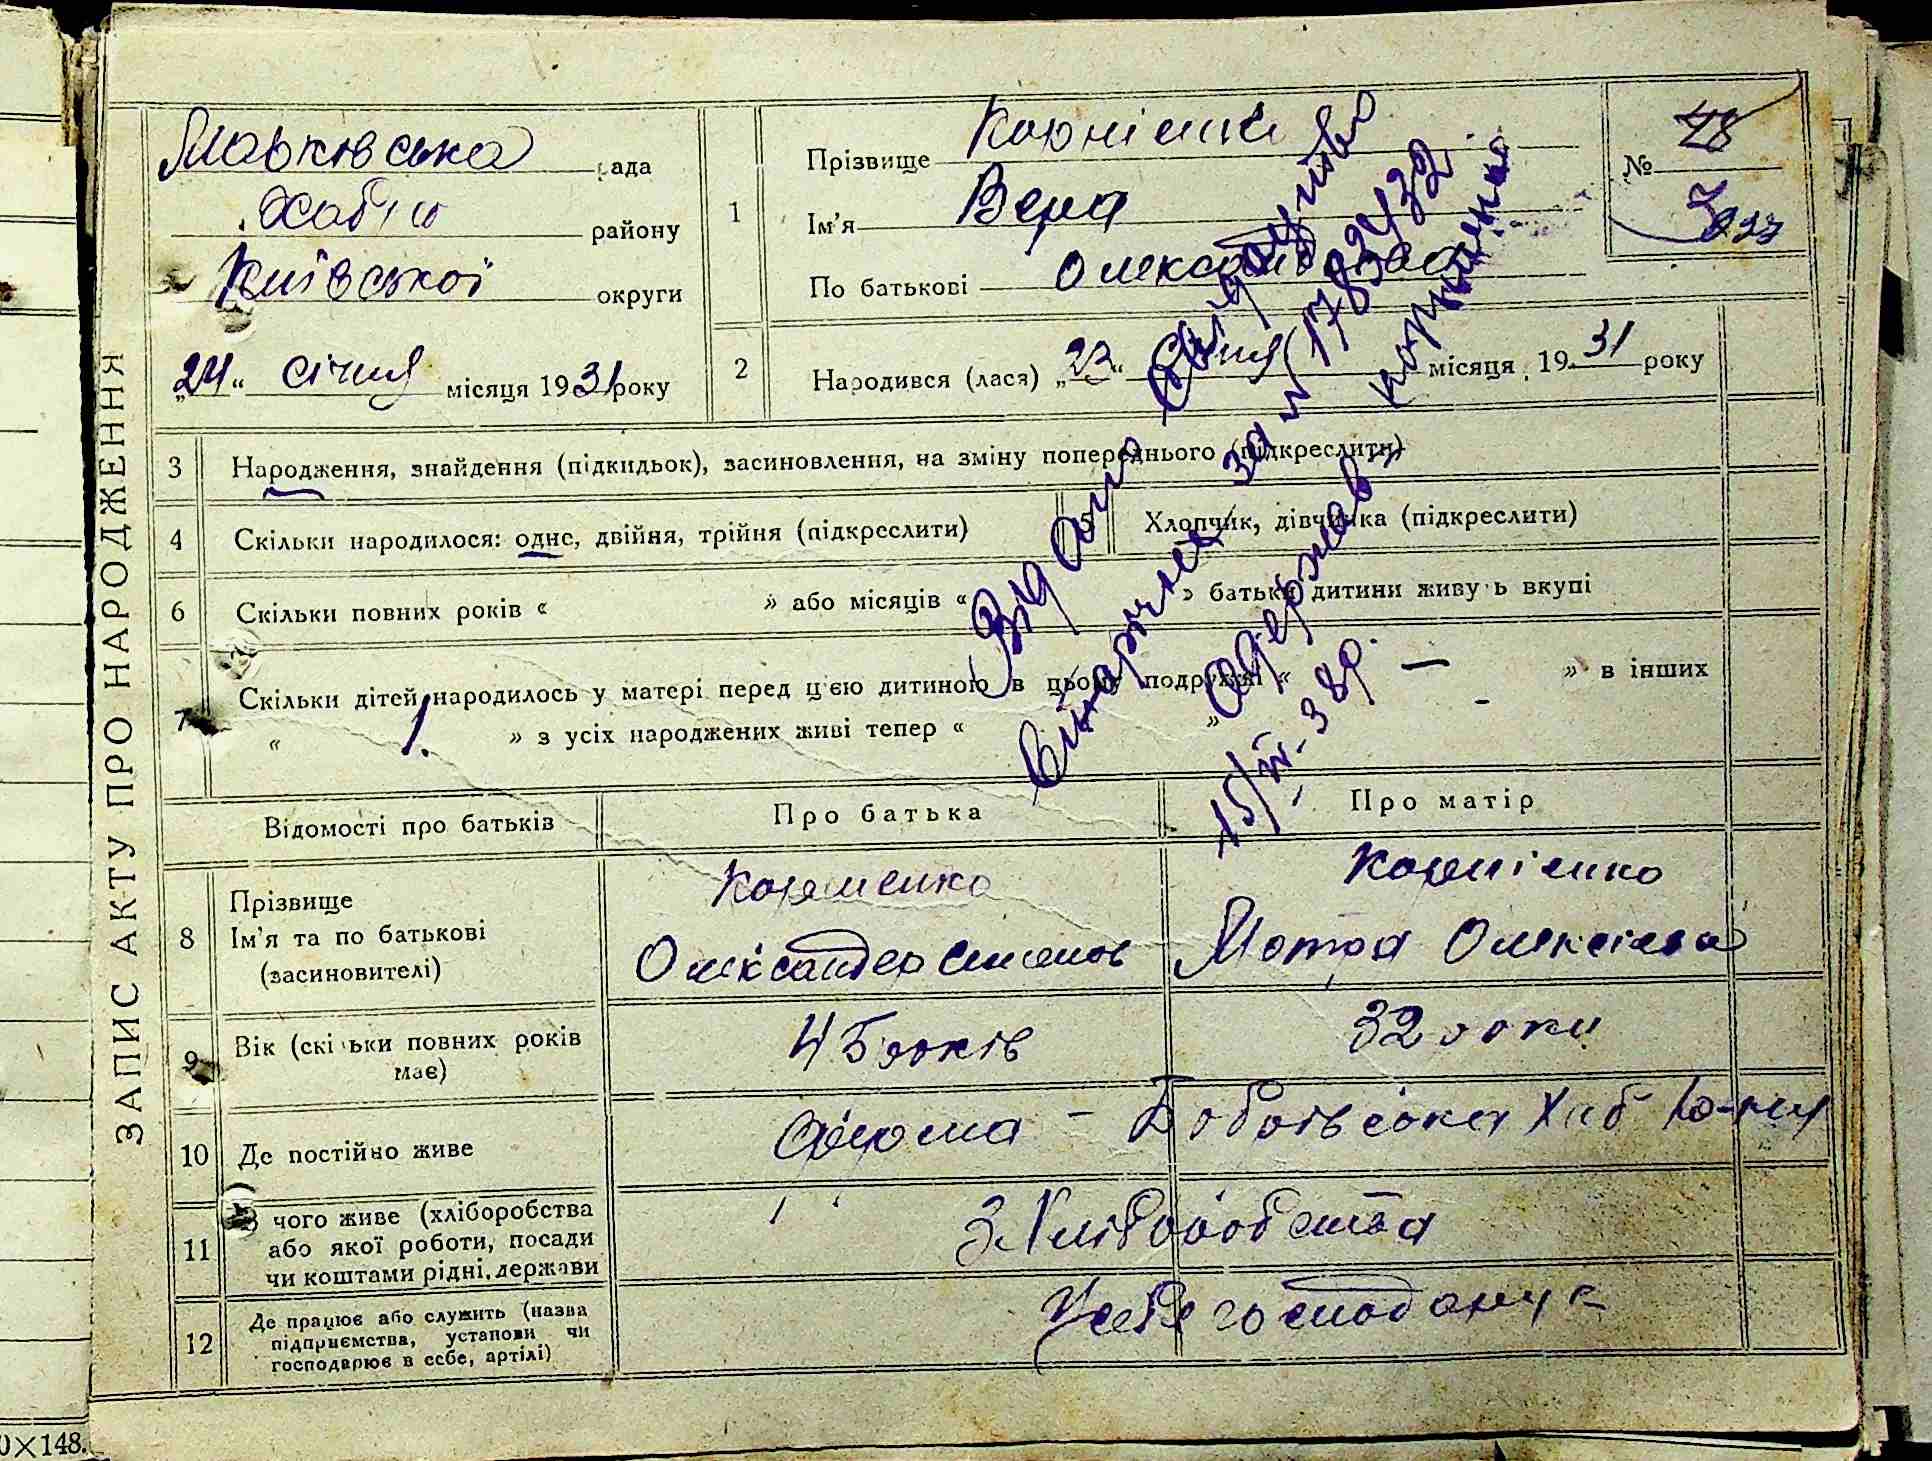 ЗАПИС АКТУ ПРО НАРОДЖЕННЯ
рада
району
Київської округи
„24“ січня місяця 1931 року
1
Прізвище
Ім'я Вера
По батькові
№ 48
2
Народився (лася) „23“ січня місяця 1931 року
3 Народження, знайдення (підкидьок), засиновлення, на зміну попереднього (підкреслити)
4 Скільки народилося: одне, двійня, трійня (підкреслити)
5 Хлопчик, дівчинка (підкреслити)
6 Скільки повних років « » або місяців « » батьки дитини живуть вкупі
7 Скільки дітей народилось у матері перед цією дитиною в цьому подружжі « — » в інших
« 1. » з усіх народжених живі тепер « » -
Видано свідоцтво
за № 1783432
одержав
15/IV-38р.
Відомості про батьків
Про батька
Про матір
8 Прізвище
Ім'я та по батькові
(засиновителі)
Корнієнко
Олександер
Корнієнко
Мотря
9 Вік (скільки повних років
має)
45 років
32 роки
10 Де постійно живе
11 З чого живе (хліборобства
або якої роботи, посади
чи коштами рідні, держави
З Хліборобства
12 Де працює або служить (назва
підприємства, установи чи
господарює в себе, артілі)
У себе господарує
0×148.